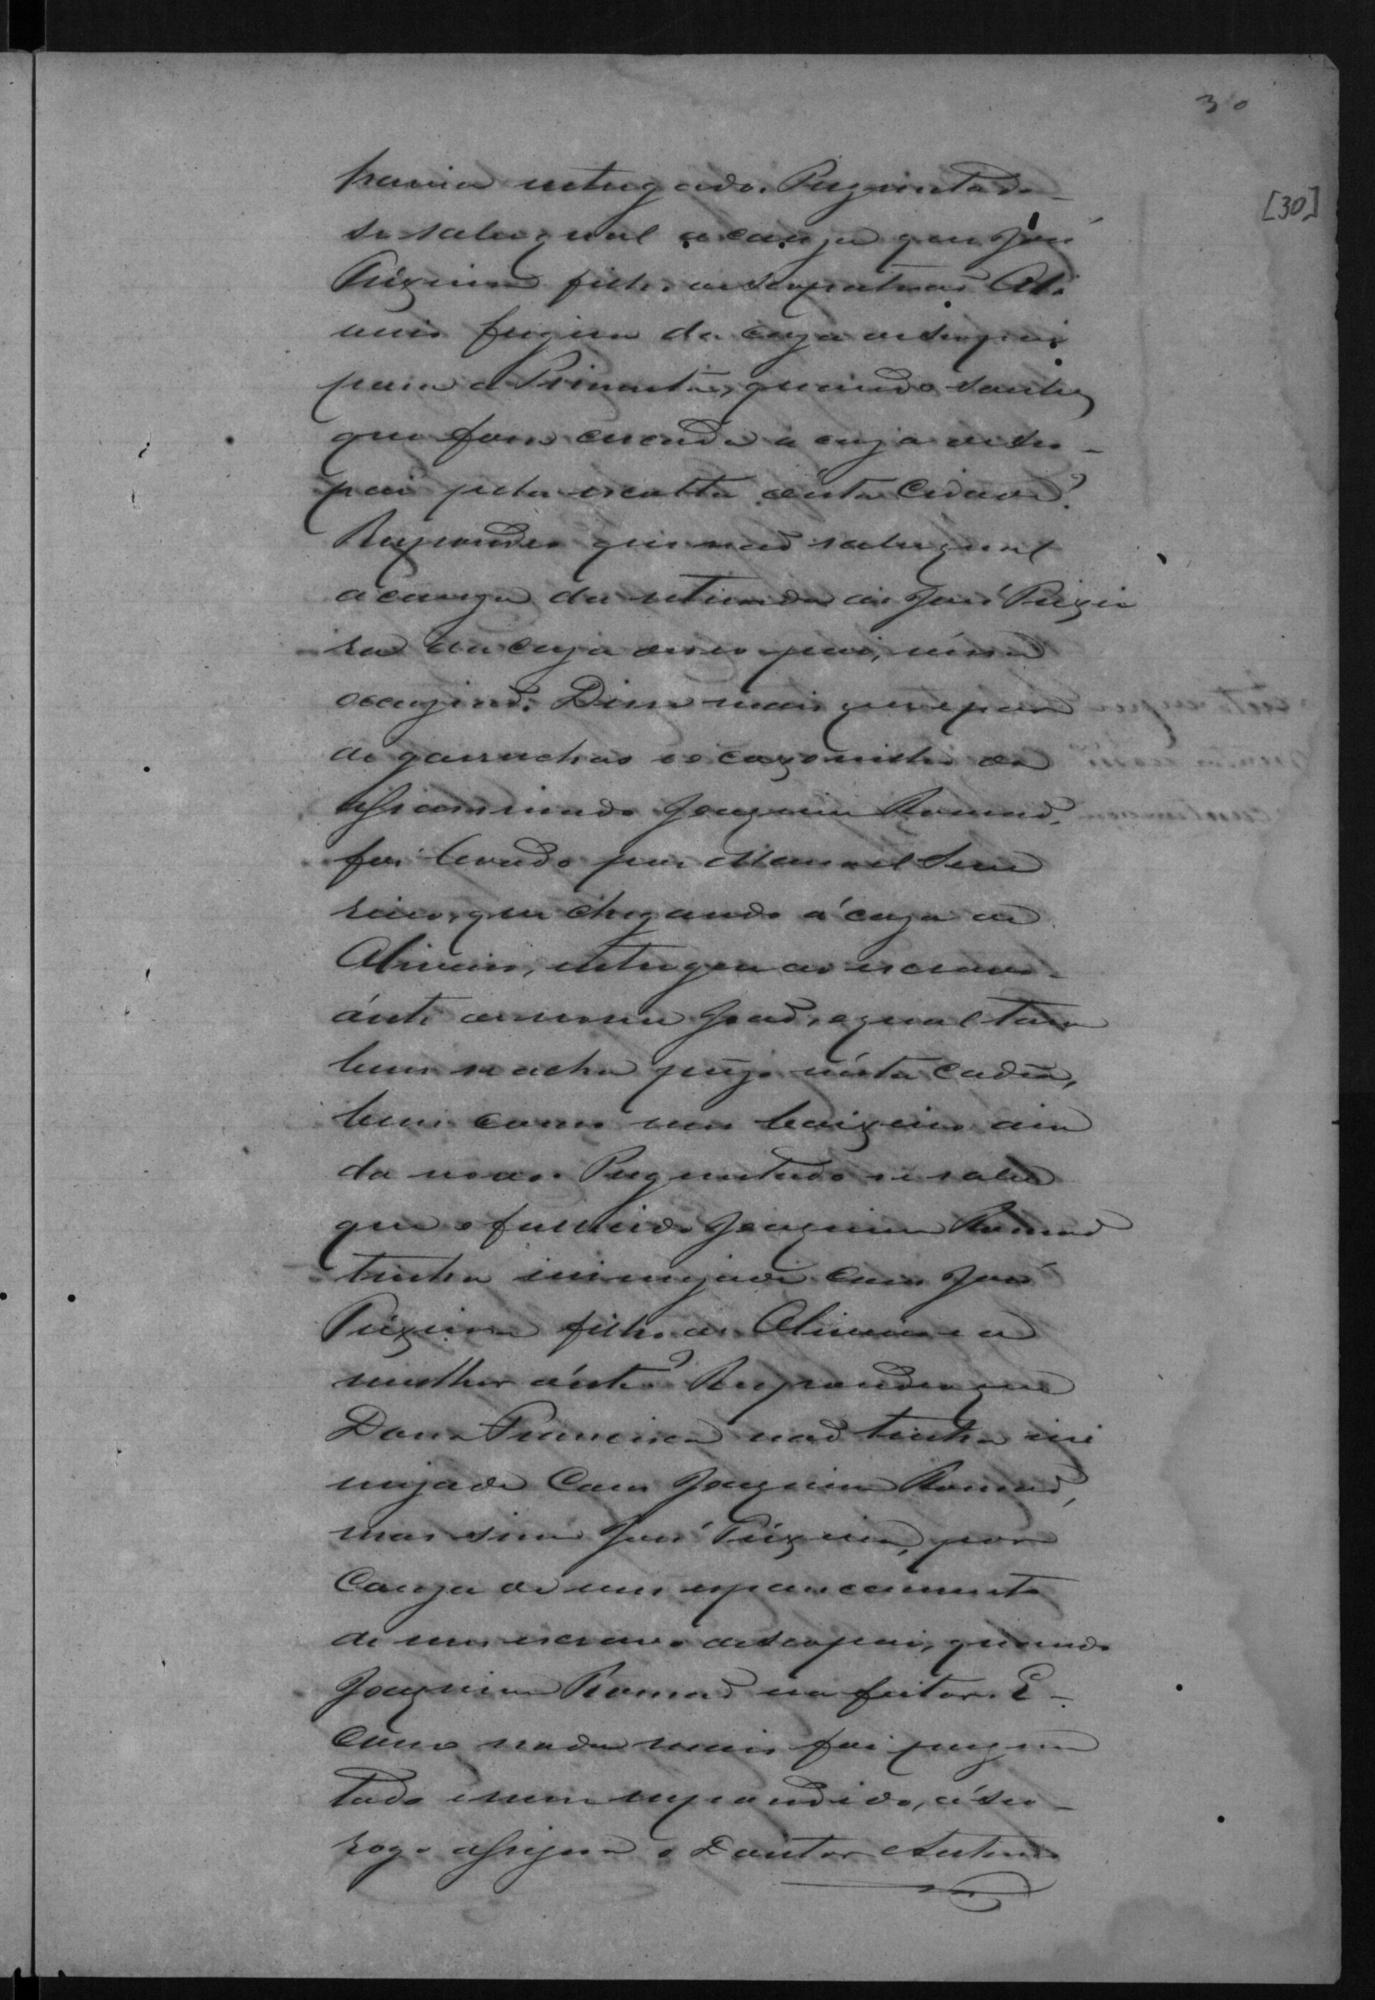 30
[30]
havia entregado. Perguntado
se sabe qual a cauza que José
Teixeira filho de seo patrão Oli
veira fugira da caza de seo pai
para a Pimenta, quando soube
que fora cercada a caza de seo
pai pela escolta desta Cidade?
Respondeo que não sabe qual
a cauza da retirada de José Teixei
ra da caza de seo pai, nessa
occazião. Disse mais que o par
de garruchas e o cazoninho do
assassinado Joaquim Romão,
foi levado por Manoel Seve
rino, que chegando á caza de
Oliveira, entregou ao escravo
deste de nome João, o qual tam
bem se acha prezo nesta Cadêa,
bem como um baixeiro ain
da novo. Perguntado se sabe
que o fallecido Joaquim Romão
tinha inimizade com José
Teixeira filho de Oliveira e a
mulher deste? Respondeo que
Dona Francisca não tinha ini
mizade com Joaquim Romão,
mas sim José Teixeira, por
cauza de um espancamento
de um escravo de seo pai, quando
Joaquim Romão era feitor. E
como nada mais foi pergun
tado e nem respondido, á seo
rogo assigna o Doutor Antonio